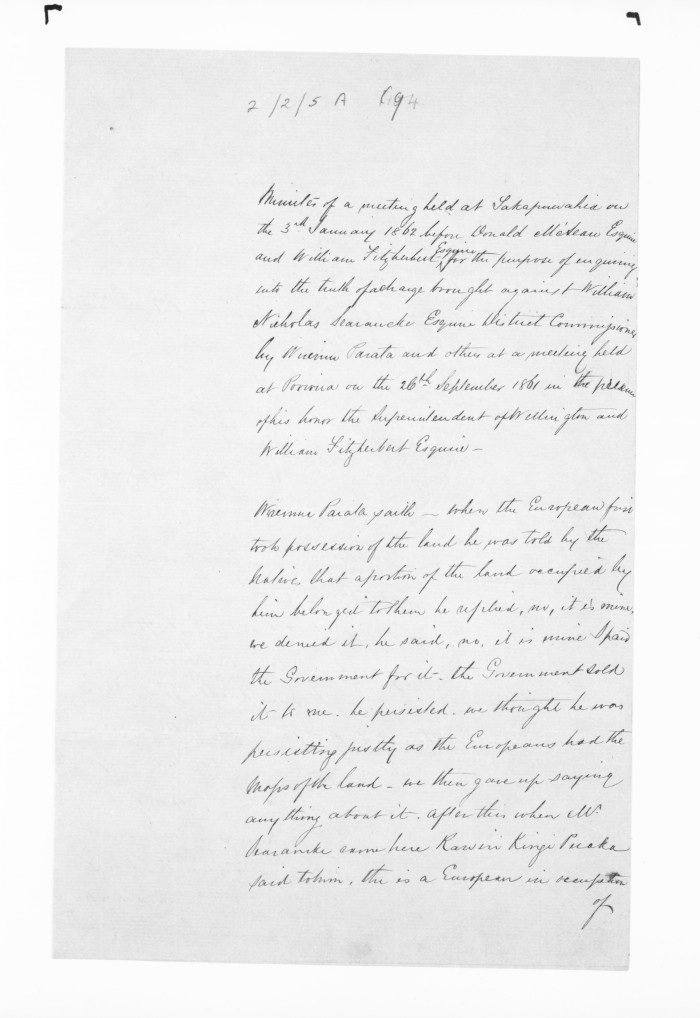 2/2/5 A 694
Minutes of a meeting held at Takapuwahia on
the 3rd January 1862 before Donald McLean Esquire
and William Fitzherbert Esquire for the purpose of enquiring
into the truth of a charge brought against William
Nicholas Searancke Esquire District Commissioner
by Wiremu Parata and others at a meeting held
at Porirua on the 26th September 1861 in the presence
of his honor the Superintendent of Wellington and
William Fitzherbert Esquire —
Wiremu Parata saith — when the European first
took possession of the land he was told by the
Natives that a portion of the land occupied by
him belonged to them he replied, no, it is mine,
we denied it, he said, no, it is mine I paid
the Government for it. the Government sold
it to me. he persisted. we thought he was
persisting justly as the Europeans had the
Maps of the land — we then gave up saying
anything about it. after this when Mr.
Searancke came here Rawiri Kingi Puaka
said to him, the is a European in occupation
of